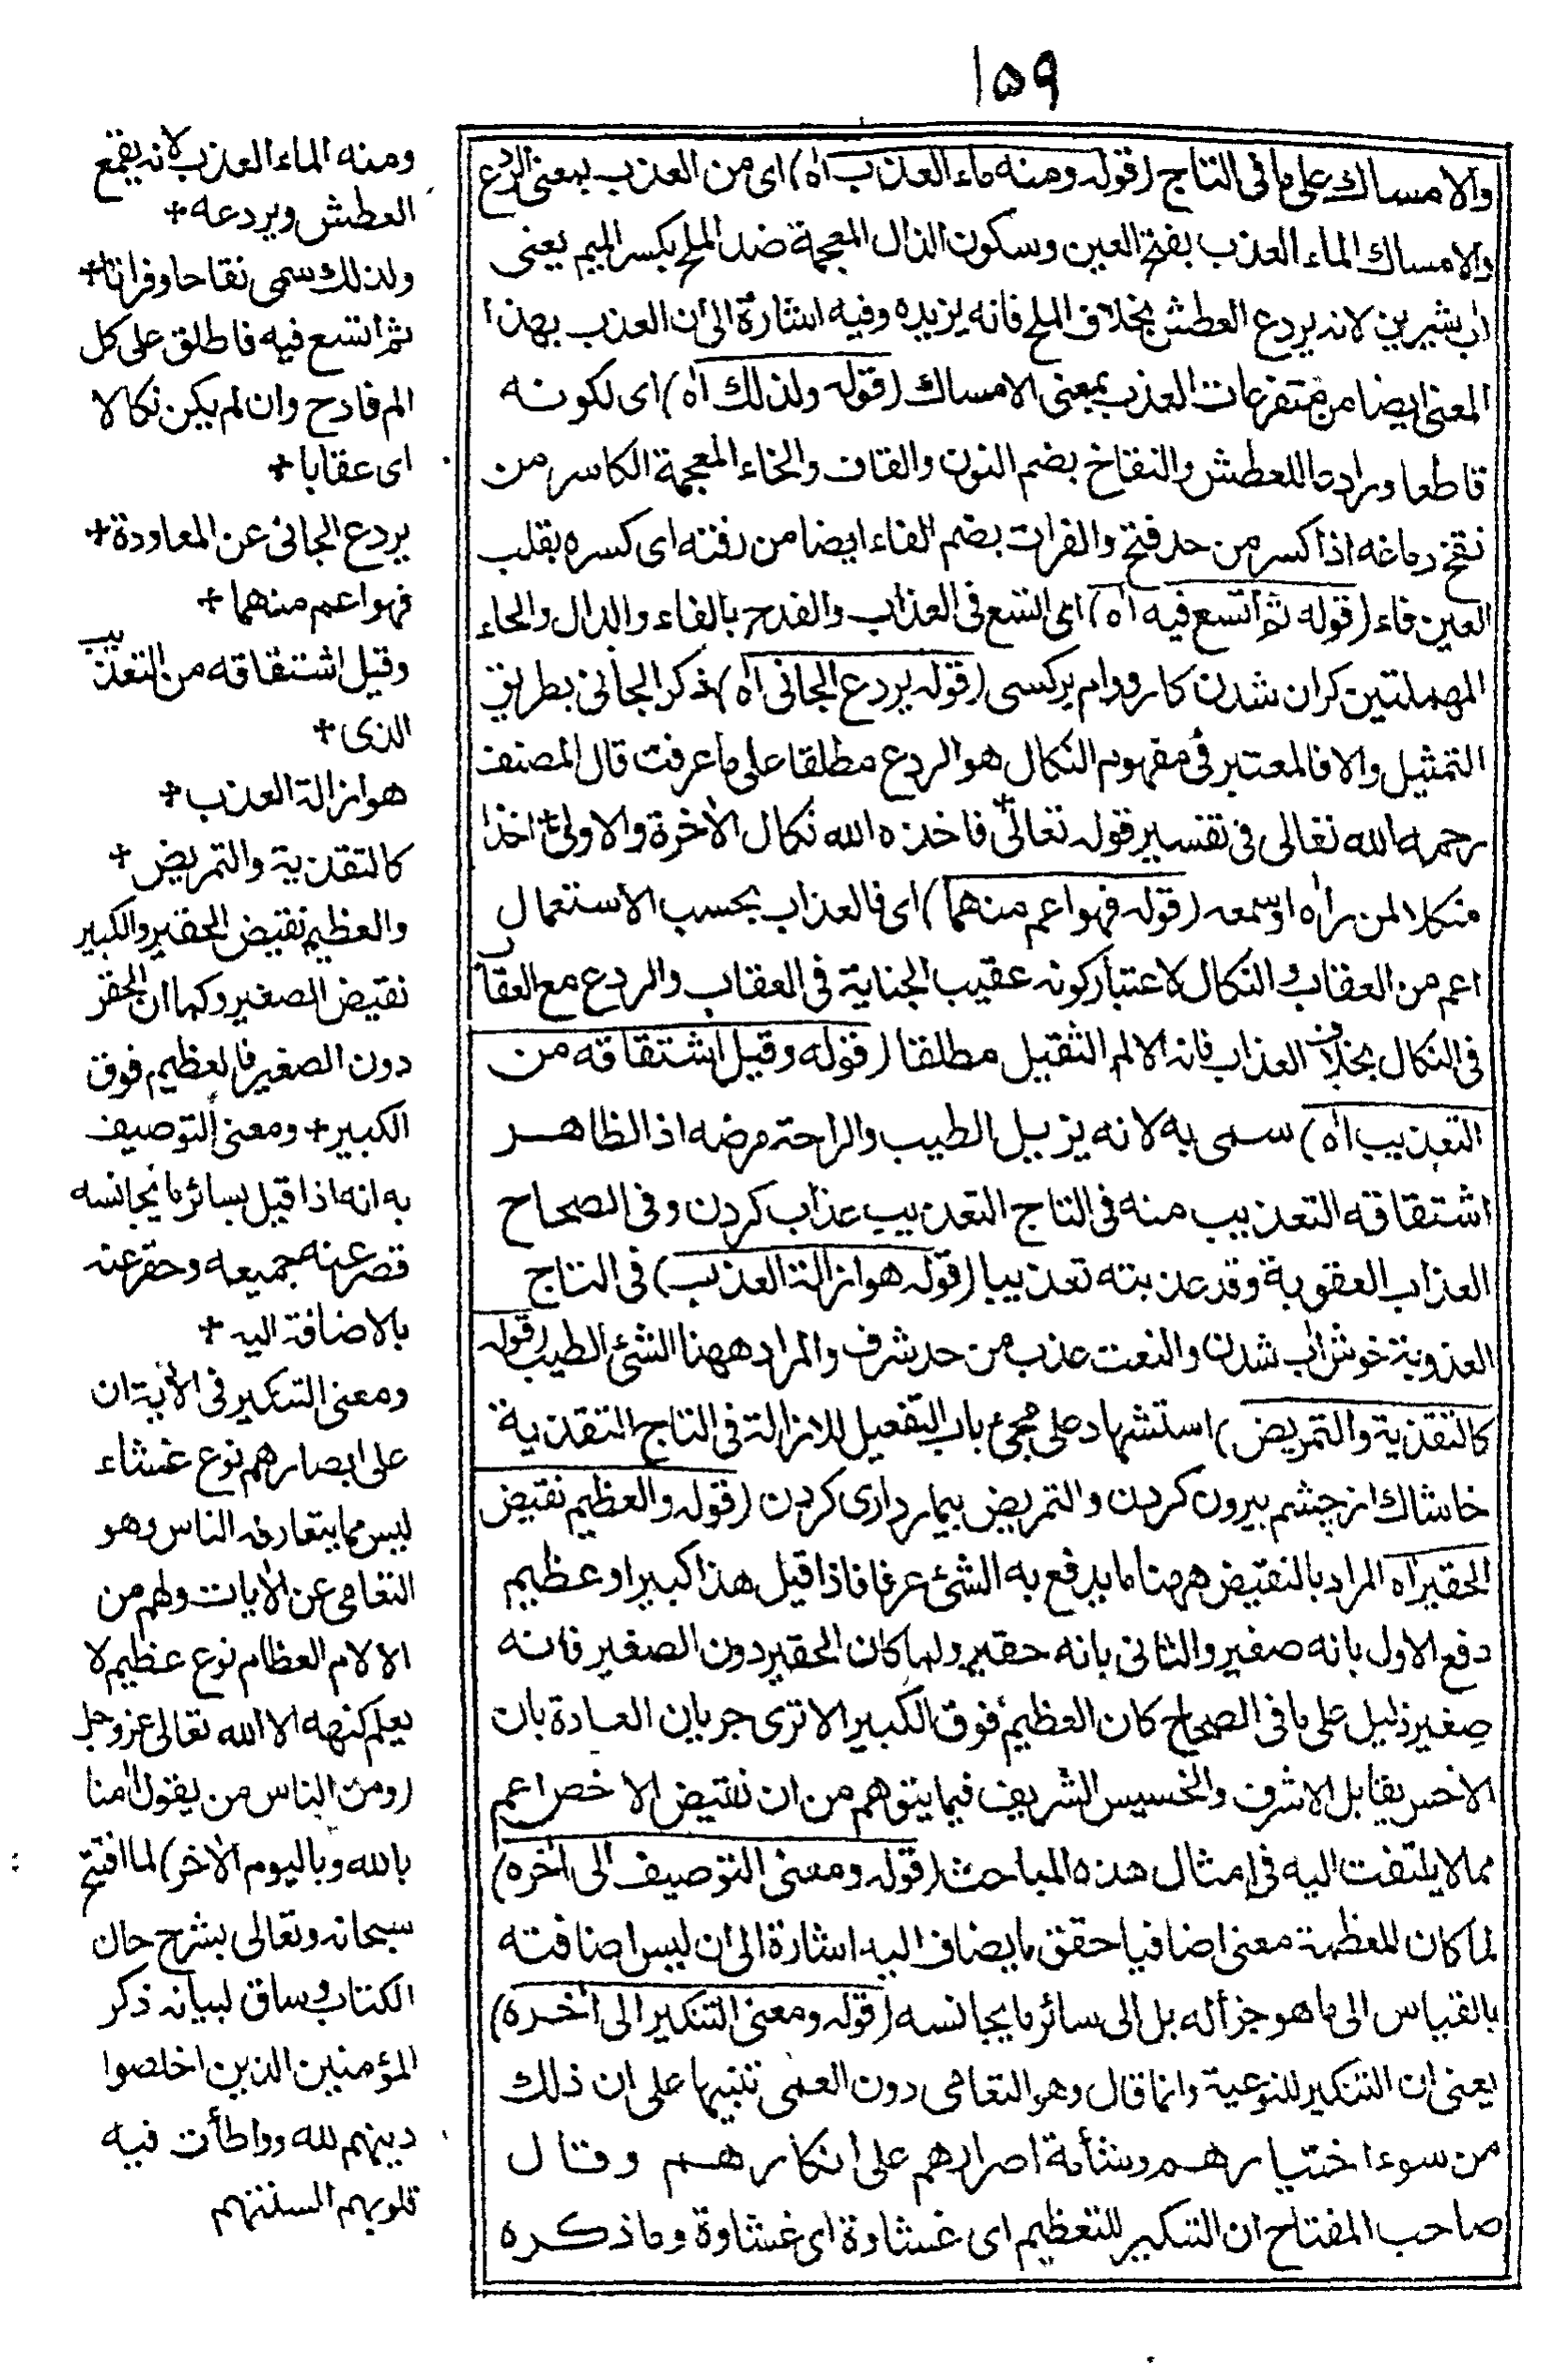 ۱۵۹
والامساك على ما فى التاج (قوله ومنه ماء العذب اه) اى من العذب بمعنى الردع
والامساك الماء العذب بفتح العين وسكون الذال المعجمة ضد الملح بكسر الميم يعنى
اب شيرين لانه يردع العطش بخلاف الملح فانه يزيده وفيه اشارة الى ان العذب بهذا
المعنى ايضا من متفرعات العذب بمعنى الامساك (قوله ولذلك اه) اى لكونه
قاطعا ورادعا للعطش والنقاخ بضم النون والقاف والخاء المعجمة الكاسر من
نقخ دماغه اذا كسر من حد فتح والفرات بضم الفاء ايضا من رفته اى كسره بقلب
العين فاء (قوله ثم اتسع فيه اه) اى اتسع فى العذاب والفدح بالفاء والدال والحاء
المهملتين كران شدن كار ووام بركسى (قوله يردع الجانى اه) ذكر الجانى بطريق
التمثيل والا فالمعتبر فى مفهوم النكال هو الردع مطلقا على ما عرفت قال المصنف
رحمه الله تعالى فى تفسير قوله تعالى فاخذه الله نكال الآخرة والاولى اخذا
منكلا لمن رآه او سمعه (قوله فهو اعم منهما) اى فالعذاب بحسب الاستعمال
اعم من العقاب والنكال لاعتبار كونه عقيب الجناية فى العقاب والردع مع العقاب
فى النكال بخلاف العذاب فانه الالم الثقيل مطلقا (قوله وقيل اشتقاقه من
التعذيب اه) سمى به لانه يزيل الطيب والراحة مرضه اذ الظاهر
اشتقاقه التعذيب منه فى التاج التعذيب عذاب كردن وفى الصحاح
العذاب العقوبة وقد عذبته تعذيبا (قوله هو ازالة العذب) فى التاج
العذوبة خوش اب شدن والنعت عذب من حد شرف والمراد ههنا الشئ الطيب (قوله
كالتقذية والتمريض) استشهاد على مجئ باب التفعيل للازالة فى التاج التقذية
خاشاك از چشم بيرون كردن والتمريض بيمار دارى كردن (قوله والعظيم نقيض
الحقير اه المراد بالنقيض ههنا ما يدفع به الشئ عرفا فاذا قيل هذا كبير او عظيم
دفع الاول بانه صغير والثانى بانه حقير ولما كان الحقير دون الصغير فانه
صغير ذليل على ما فى الصحاح كان العظيم فوق الكبير الا ترى جريان العادة بان
الاخس يقابل الاشرف والخسيس الشريف فيما يتوهم من ان نقيض الاخص اعم
مما لا يلتفت اليه فى امثال هذه المباحث (قوله ومعنى التوصيف الى آخره)
لما كان للعظمة معنى اضافيا حقق ما يضاف اليه اشارة الى ان ليس اضافته
بالقياس الى ما هو جزأ له بل الى سائر ما يجانسه (قوله ومعنى التنكير الى آخره)
يعنى ان التنكير للنوعية وانما قال وهو التعامى دون العمى تنبيها على ان ذلك
من سوء اختيارهم وشأمة اصرارهم على انكارهم وقال
صاحب المفتاح ان التنكير للتعظيم اى غشاوة اى غشاوة وما ذكره
ومنه الماء العذب لانه يقمع
العطش ويردعه +
ولذلك سمى نقاخا وفراتا +
ثم اتسع فيه فاطلق على كل
الم فادح وان لم يكن نكالا
اى عقابا +
يردع الجانى عن المعاودة +
فهو اعم منهما +
وقيل اشتقاقه من التعذيب
الذى +
هو ازالة العذب +
كالتقذية والتمريض +
والعظيم نقيض الحقير والكبير
نقيض الصغير وكما ان الحقر
دون الصغير فالعظيم فوق
الكبير + ومعنى التوصيف
به انه اذا قيل بسائر ما يجانسه
قصر عنه جميعه وحقر عنه
بالاضافة اليه +
ومعنى التنكير فى الآية ان
على ابصارهم نوع غشاء
ليس مما يتعارفه الناس وهو
التعامى عن الآيات ولهم من
الالام العظام نوع عظيم لا
يعلم كنهه الا الله تعالى عز وجل
(ومن الناس من يقول آمنا
بالله وباليوم الآخر) لما افتتح
سبحانه وتعالى بشرح حال
الكتاب وساق لبيانه ذكر
المؤمنين الذين اخلصوا
دينهم لله وواطأت فيه
قلوبهم السنتهم